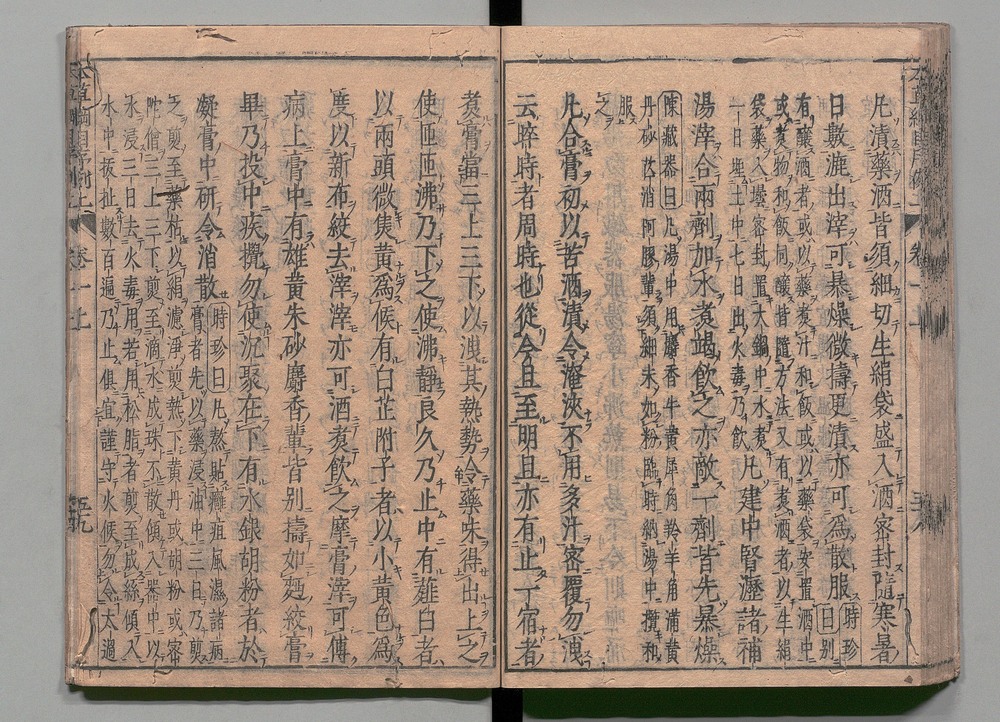 凡漬藥酒皆須細切生絹袋盛入酒密封隨寒暑
日數漉出滓可暴燥微擣更漬亦可為散服
時珍曰別
有釀酒者或以藥煮汁和飯或以藥袋安置酒中
或煮物和飯同釀皆隨方法又有煮酒者以生絹
袋藥入壜密封置大鍋中水煮
一日埋土中七日出火毒乃飲
凡建中腎瀝諸補
湯滓合兩劑加水煮竭飲之亦敵一劑皆先暴燥
陳藏器曰凡湯中用麝香牛黃犀角羚羊角蒲黃
丹砂芒消阿膠輩須細末如粉臨時納湯中攪和
服
之
凡合膏初以苦酒漬令淹浹不用多汁密覆勿洩
云晬時者周時也從今旦至明旦亦有止一宿者
煮膏當三上三下以洩其熱勢令藥味得出上之
使匝匝沸乃下之使沸靜良久乃止中有薤白者
以兩頭微焦黃為候有白芷附子者以小黃色為
度以新布絞去滓滓亦可酒煮飲之摩膏滓可傅
病上膏中有雄黃朱砂麝香輩皆別擣如麪絞膏
畢乃投中疾攪勿使沉聚在下有水銀胡粉者於
凝膏中研令消散
時珍曰凡熬貼癰疽風濕諸病
膏者先以藥浸油中三日乃煎
之煎至藥枯以絹濾淨煎熱下黃丹或胡粉或密
陀僧三上三下煎至滴水成珠不散傾入器中以
水浸三日去火毒用若用松脂者煎至成絲傾入
水中拔扯數百遍乃止俱宜謹守火候勿令太過